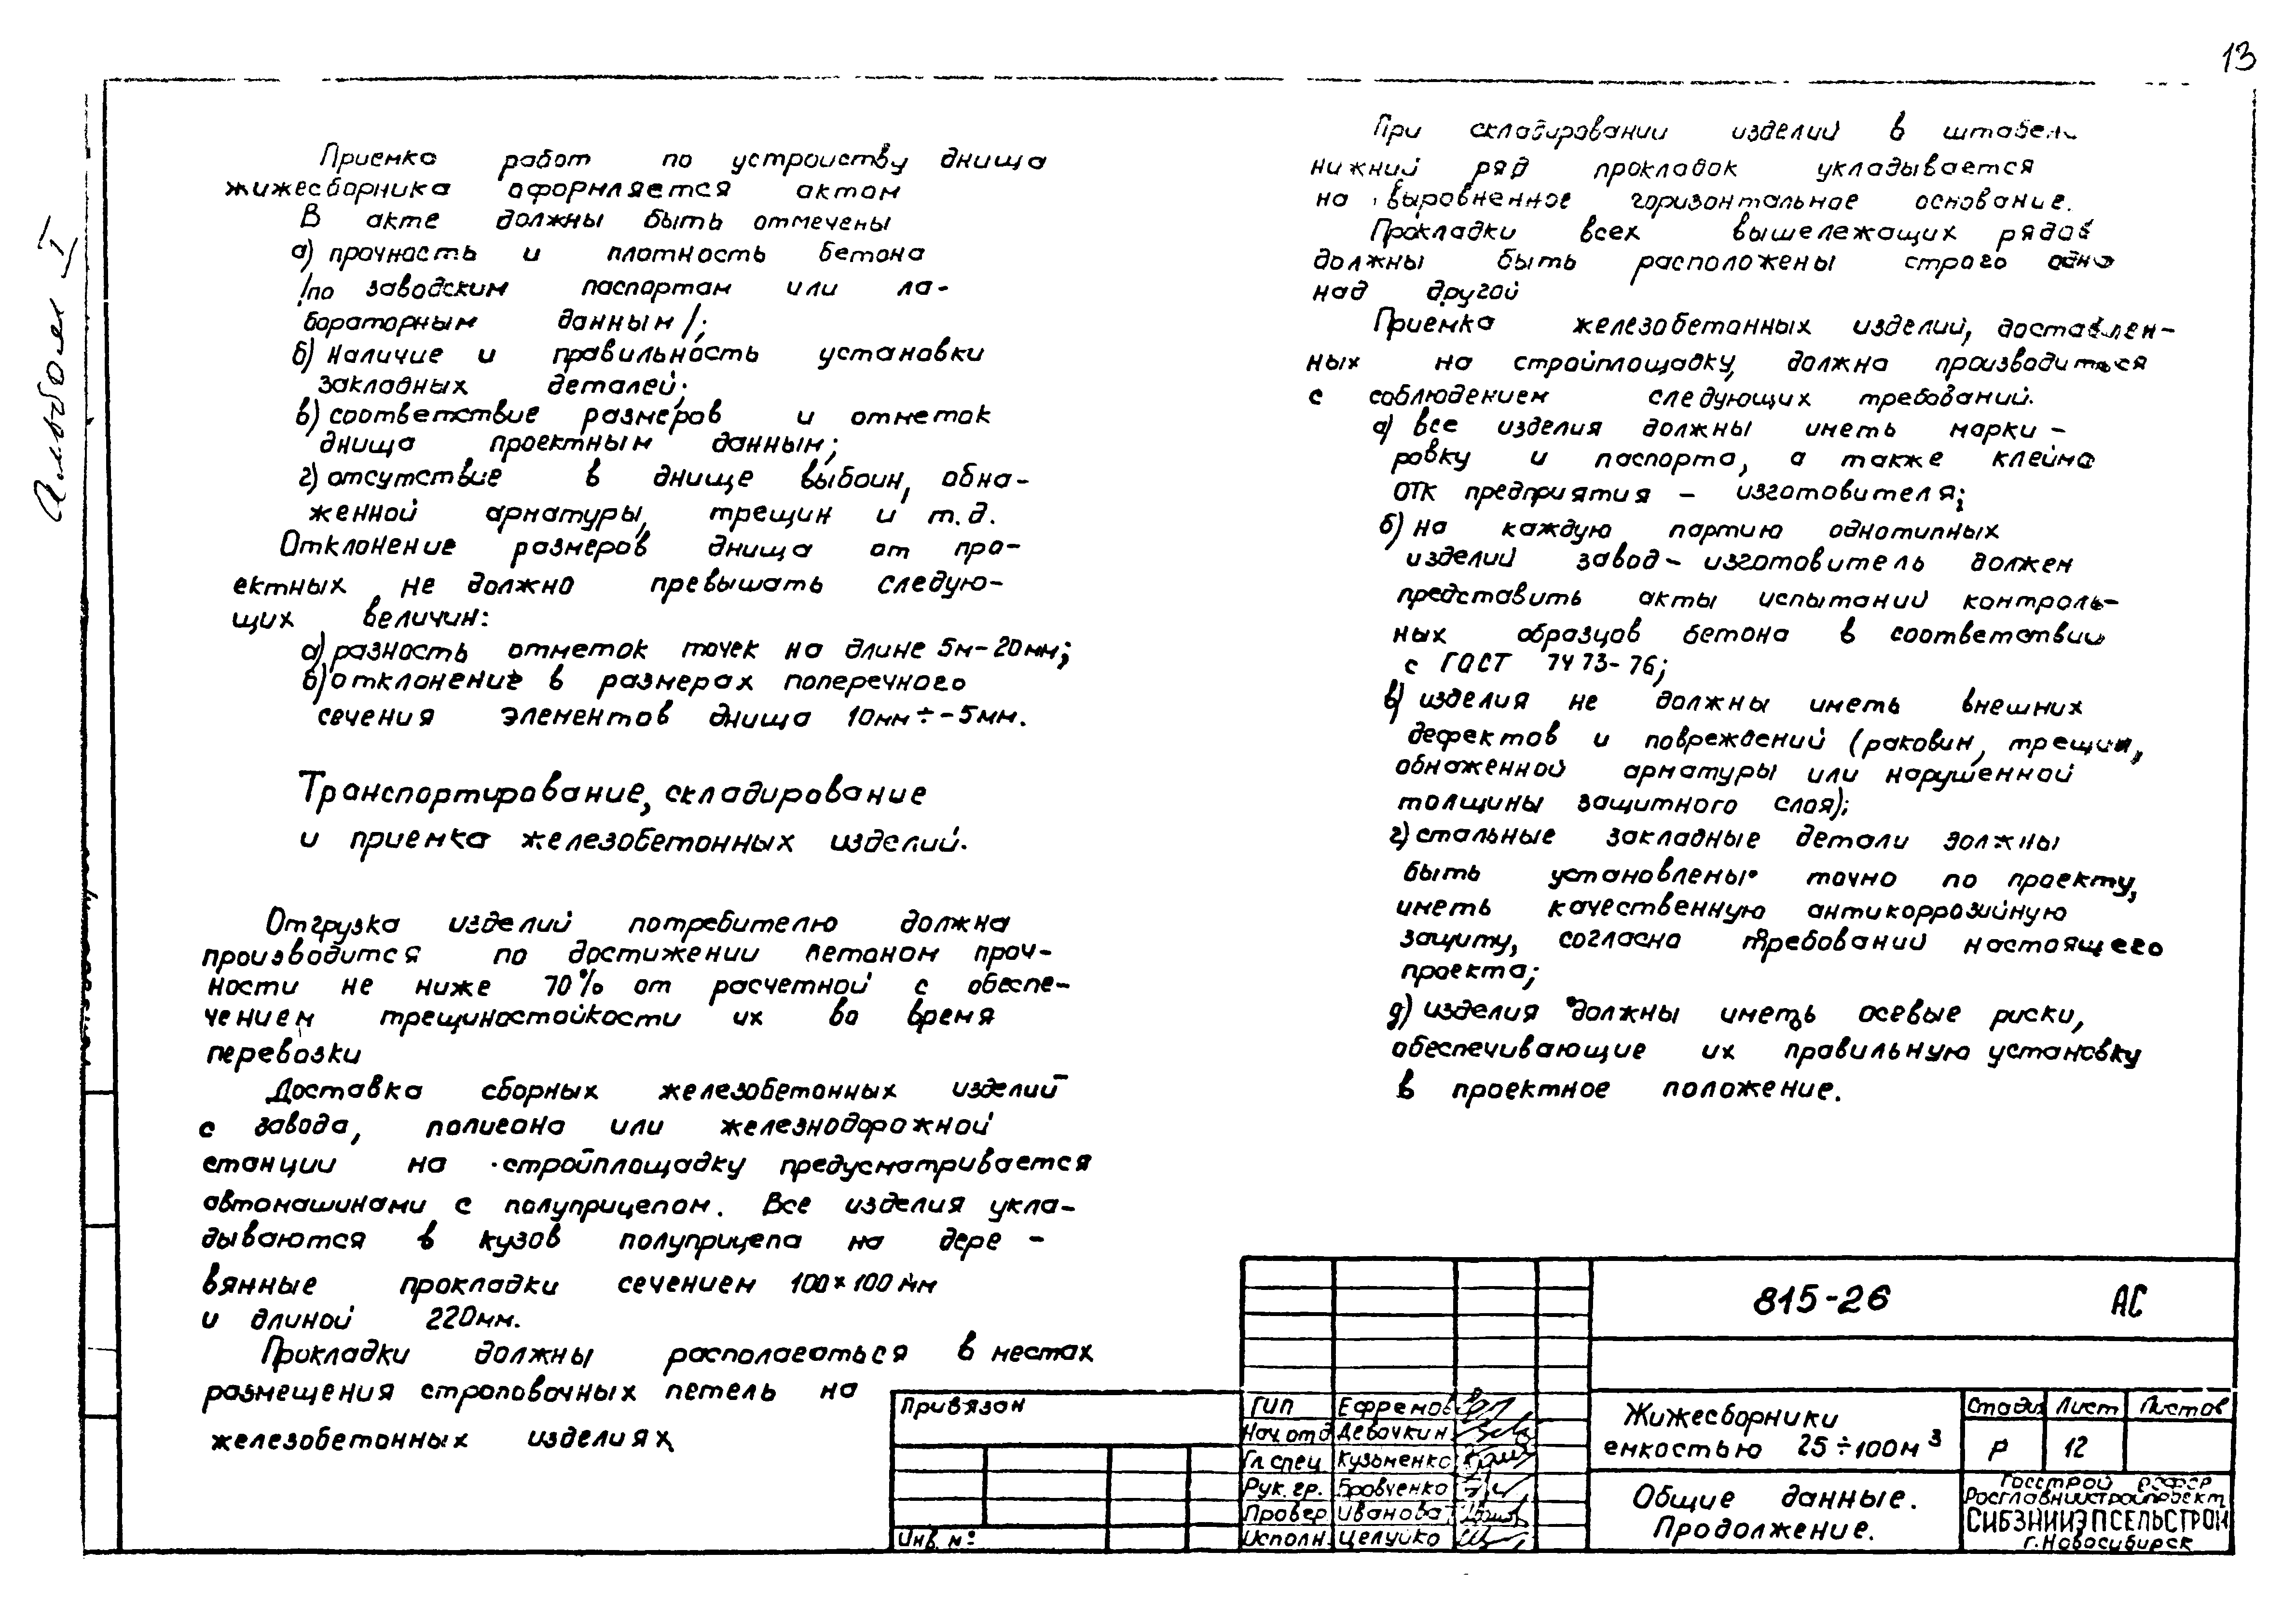 13
Альбом I
Приемка работ по устройству днища
жижесборника оформляется актом
В акте должны быть отмечены
а) прочность и плотность бетона
/по заводским паспортам или ла-
бораторным данным/;
б) наличие и правильность установки
закладных деталей;
в) соответствие размеров и отметок
днища проектным данным;
г) отсутствие в днище выбоин, обна-
женной арматуры, трещин и т.д.
Отклонение размеров днища от про-
ектных не должно превышать следую-
щих величин:
а) разность отметок точек на длине 5м-20мм;
б) отклонение в размерах поперечного
сечения элементов днища 10мм÷-5мм.
Транспортирование, складирование
и приемка железобетонных изделий.
Отгрузка изделий потребителю должна
производится по достижении петаном проч-
ности не ниже 70% от расчетной с обеспе-
чением трещиностойкости их во время
перевозки
Доставка сборных железобетонных изделий
с завода, полигона или железнодорожной
станции на стройплощадку предусматривается
автомашинами с полуприцепом. Все изделия укла-
дываются в кузов полуприцепа на дере-
вянные прокладки сечением 100×100мм
и длиной 220мм.
Прикладки должны располагаться в местах
размещения строповочных петель на
железобетонных изделиях,
При складировании изделий в штабели
нижний ряд прокладок укладывается
на выровненное горизонтальное основание.
Прокладки всех вышележащих рядов
должны быть расположены строго одна
над другой
Приемка железобетонных изделий, доставлен-
ных на стройплощадку, должна производиться
с соблюдением следующих требований.
а) все изделия должны иметь марки-
ровку и паспорта, а также клейма
ОТК предприятия - изготовителя;
б) на каждую партию однотипных
изделий завод-изготовитель должен
представить акты испытаний контроль-
ных образцов бетона в соответствии
с ГОСТ 7473-76;
в) изделия не должны иметь внешних
дефектов и повреждений (раковин, трещин,
обнаженной арматуры или нарушенной
толщины защитного слоя);
г) стальные закладные детали должны
быть установлены точно по проекту,
иметь качественную антикоррозийную
защиту, согласно требований настоящего
проекта;
д) изделия должны иметь осевые риски,
обеспечивающие их правильную установку
в проектное положение.
Привязан
Инв. №:
ГИП Ефремов
Нач. отд Девочкин
Гл. спец. Кузьменко
Рук. гр. Бровченко
Провер. Иванова
Исполн. Целуйко
815-26 АС
Жижесборники
емкостью 25÷100м³
Стадия Лист Листов
Р 12
Общие данные.
Продолжение.
Госстрой РСФСР
Росглавниистройпроект
СИБЗНИИЭПСЕЛЬСТРОЙ
г. Новосибирск